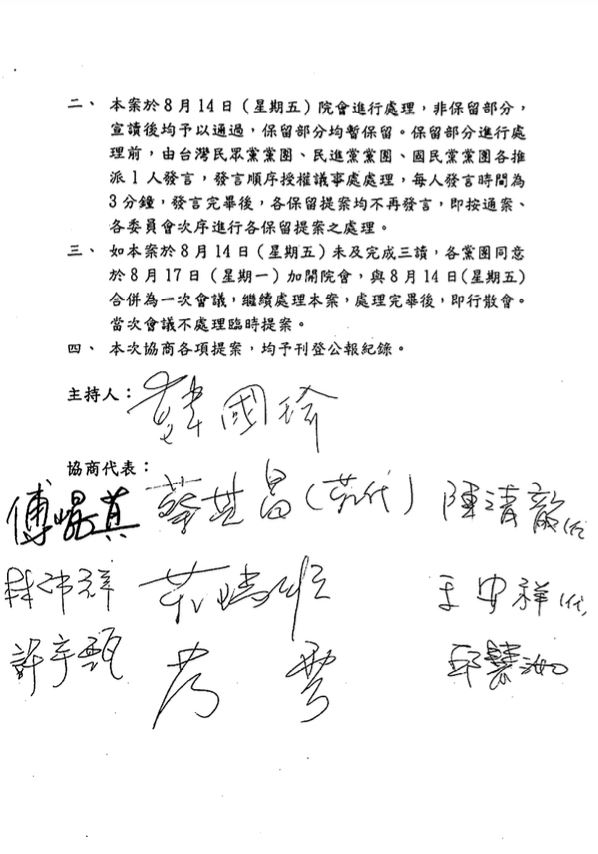 二、 本案於8月14日（星期五）院會進行處理，非保留部分，
宣讀後均予以通過，保留部分均暫保留。保留部分進行處
理前，由台灣民眾黨黨團、民進黨黨團、國民黨黨團各推
派1人發言，發言順序授權議事處處理，每人發言時間為
3分鐘，發言完畢後，各保留提案均不再發言，即按通案、
各委員會次序進行各保留提案之處理。
三、 如本案於8月14日（星期五）未及完成三讀，各黨團同意
於8月17日（星期一）加開院會，與8月14日(星期五)
合併為一次會議，繼續處理本案，處理完畢後，即行散會。
當次會議不處理臨時提案。
四、 本次協商各項提案，均予刊登公報紀錄。
主持人： 韓國瑜
協商代表：
傅崐萁 蔡其昌（莊代） 陳清龍代
林沛祥 莊瑞雄 王安祥代
許宇甄 范雲 邱慧洳